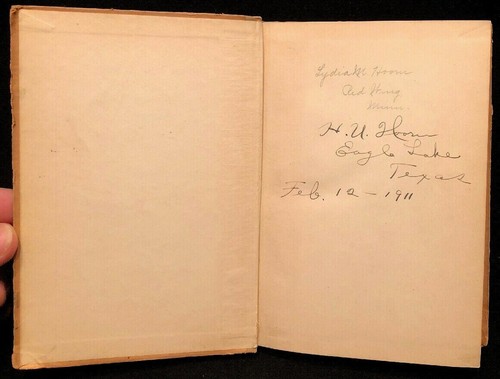 Lydia M. Hoorn
Red Wing
Minn.
H. U. Hoorn
Eagle Lake
Texas
Feb. 12 – 1911